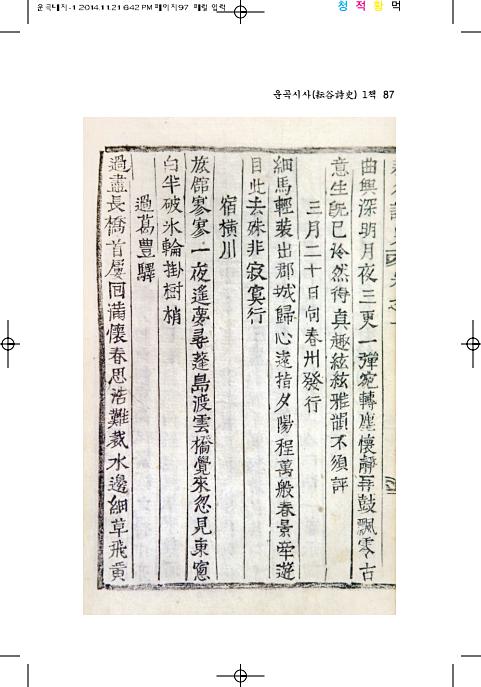 운곡대지-1 2014.11.21 6:42 PM 페이지97 매킬 입력
청 적 황 먹
운곡시사(耘谷詩史) 1책 87
曲興深明月夜三更一彈宛轉塵懷靜再鼓飄零古
意生既已冷然得真趣絃絃雅韻不須評
三月二十日向春州發行
細馬輕装出郡城歸心遠指夕陽程萬般春景牽遊
目此去殊非寂寞行
宿橫川
旅館寥寥一夜遙夢尋蓬島渡雲橋覺來忽見東窓
白半破氷輪掛樹梢
過葛豊驛
過盡長橋首屢回滿懷春思浩難裁水邊細草飛黄